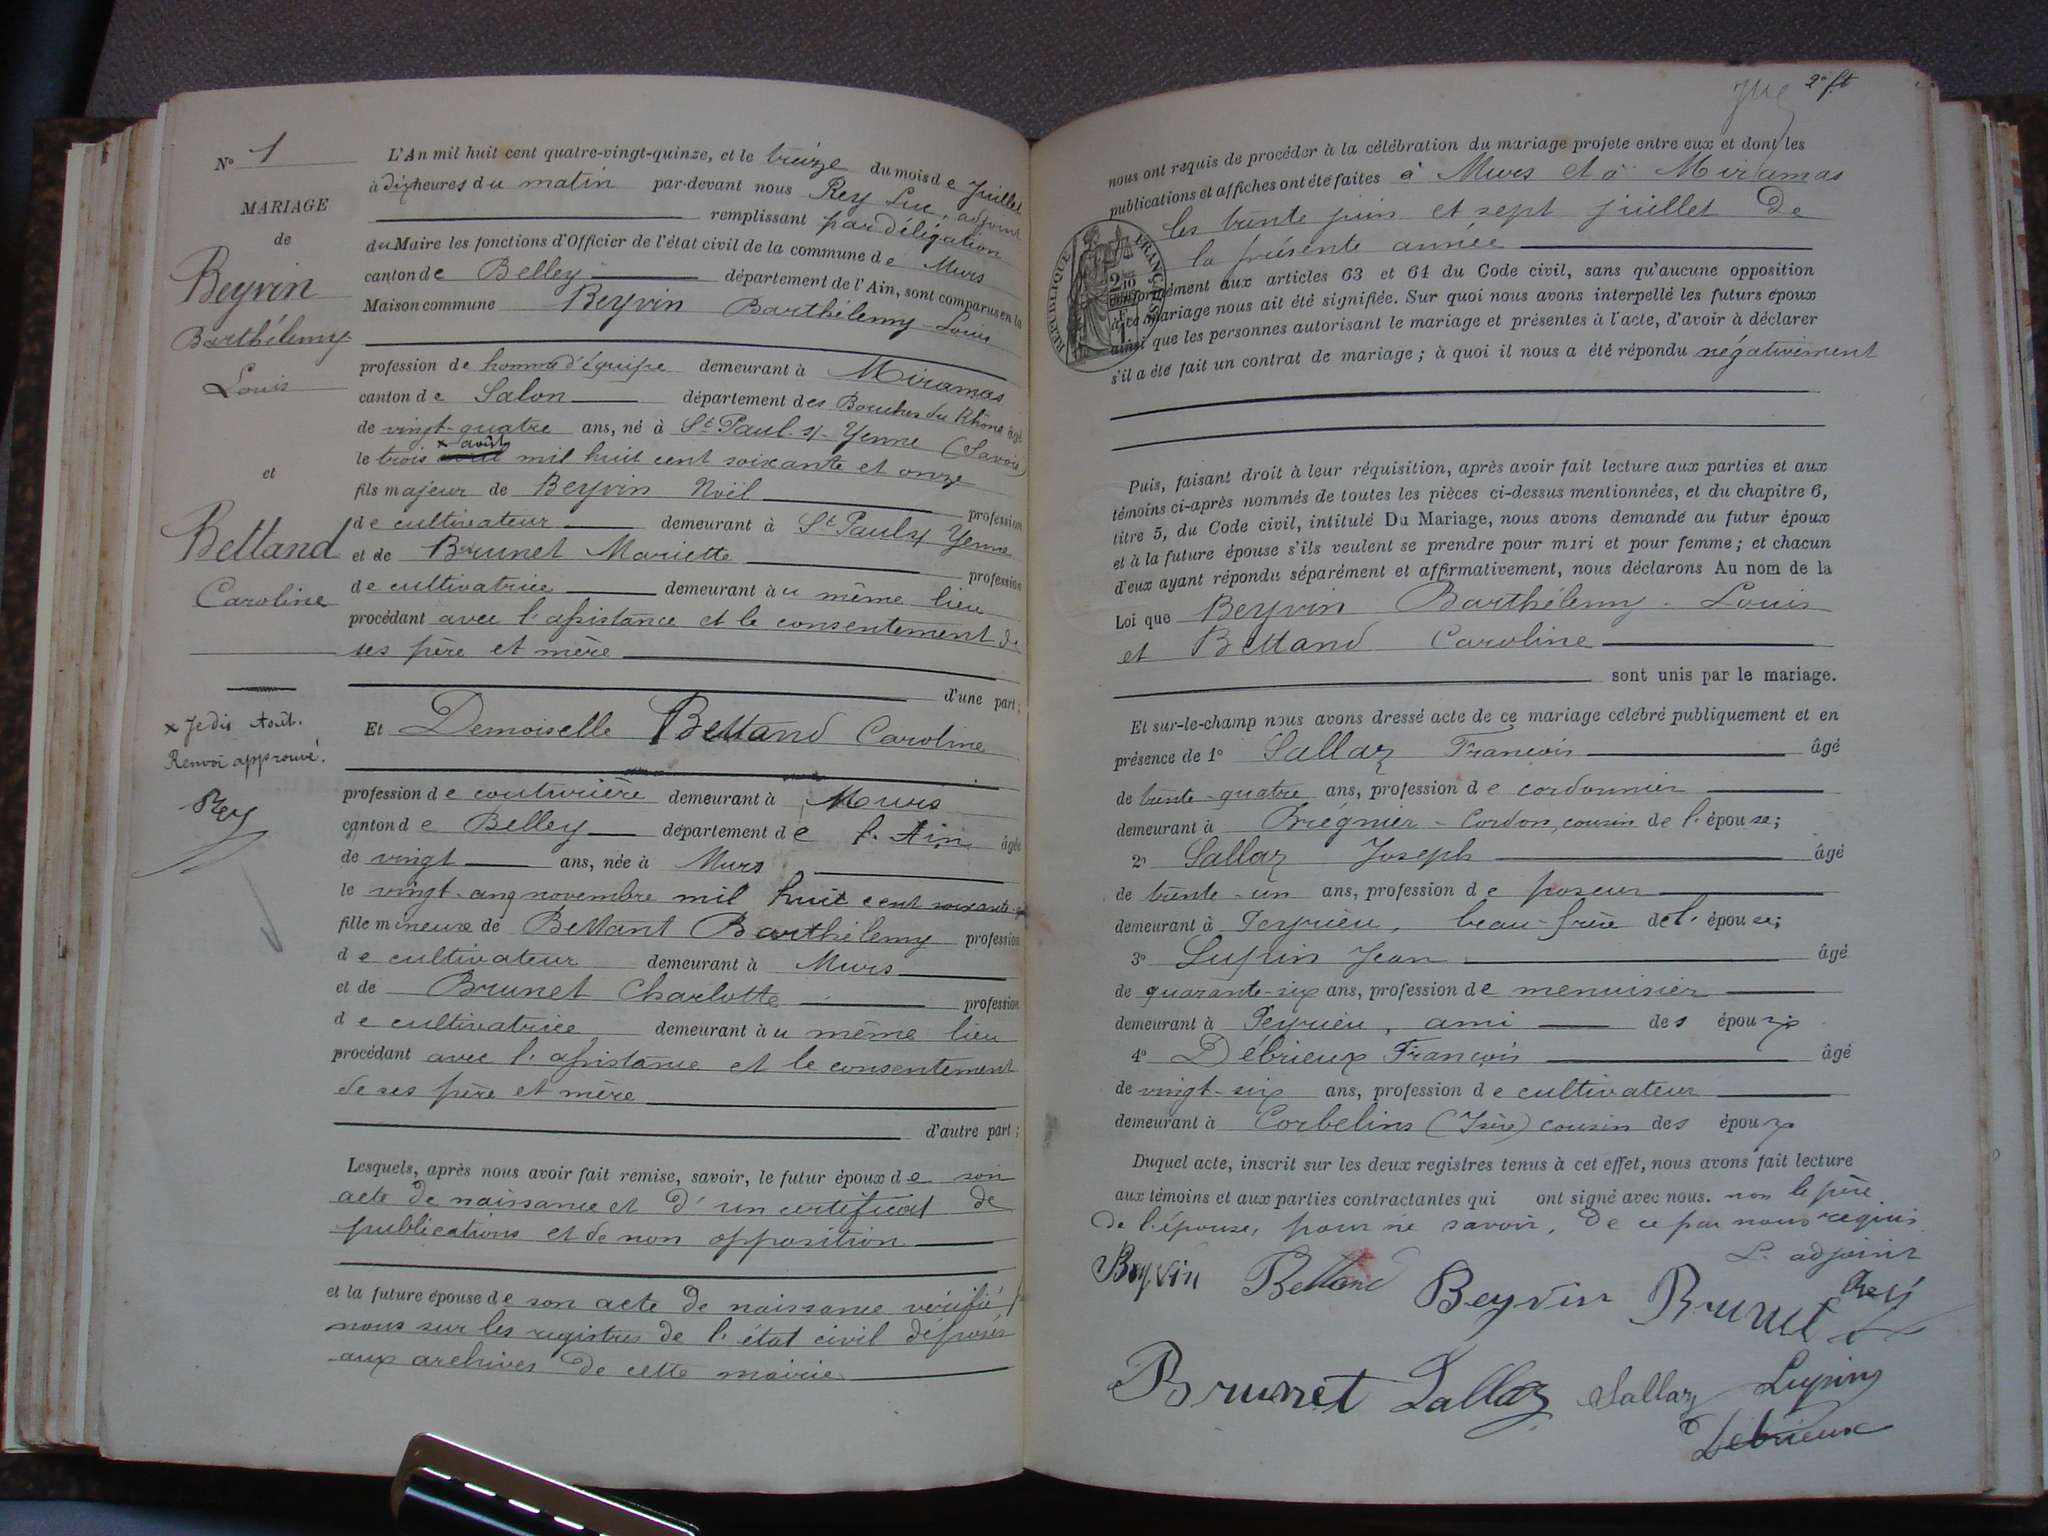 N° 1
MARIAGE
de
Beyvin
Barthélemy
Louis
et
Bettand
Caroline
x Je dis Août.
Renvoi approuvé.
Rey
L'An mil huit cent quatre-vingt-quinze, et le treize du mois de Juillet
à dix heures du matin par-devant nous Rey Luc, adjoint
remplissant par délégation
du Maire les fonctions d'Officier de l'état civil de la commune de Murs
canton de Belley département de l'Ain, sont comparus en la
Maison commune Beyvin Barthélemy-Louis
profession de homme d'équipe demeurant à Miramas
canton de Salon département des Bouches du Rhône âgé
de vingt-quatre ans, né à St Paul s/ Yenne (Savoie)
x août
le trois avril mil huit cent soixante et onze
fils majeur de Beyvin Noël profession
de cultivateur demeurant à St Paul s/ Yenne
et de Brunet Mariette profession
de cultivatrice demeurant au même lieu
procédant avec l'assistance et le consentement de
ses père et mère
d'une part;
Et Demoiselle Bettand Caroline
profession de couturière demeurant à Murs
canton de Belley département de l'Ain âgée
de vingt ans, née à Murs
le vingt-cinq novembre mil huit cent soixante
fille mineure de Bettant Barthélemy profession
de cultivateur demeurant à Murs
et de Brunet Charlotte profession
de cultivatrice demeurant au même lieu
procédant avec l'assistance et le consentement
de ses père et mère
d'autre part;
Lesquels, après nous avoir fait remise, savoir, le futur époux de son
acte de naissance et d'un certificat de
publications et de non opposition
et la future épouse de son acte de naissance vérifié
nous sur les registres de l'état civil déposés
aux archives de cette mairie
2e ft
nous ont requis de procéder à la célébration du mariage projeté entre eux et dont les
publications et affiches ont été faites à Murs et à Miramas
les trente juin et sept juillet de
la présente année
conformément aux articles 63 et 64 du Code civil, sans qu'aucune opposition
à ce mariage nous ait été signifiée. Sur quoi nous avons interpellé les futurs époux
ainsi que les personnes autorisant le mariage et présentes à l'acte, d'avoir à déclarer
s'il a été fait un contrat de mariage; à quoi il nous a été répondu négativement
RÉPUBLIQUE FRANÇAISE
Puis, faisant droit à leur réquisition, après avoir fait lecture aux parties et aux
témoins ci-après nommés de toutes les pièces ci-dessus mentionnées, et du chapitre 6,
titre 5, du Code civil, intitulé Du Mariage, nous avons demandé au futur époux
et à la future épouse s'ils veulent se prendre pour mari et pour femme; et chacun
d'eux ayant répondu séparément et affirmativement, nous déclarons Au nom de la
Loi que Beyvin Barthélemy-Louis
et Bettand Caroline
sont unis par le mariage.
Et sur-le-champ nous avons dressé acte de ce mariage célébré publiquement et en
présence de 1° Sallaz François âgé
de trente-quatre ans, profession de cordonnier
demeurant à Brégnier-Cordon, cousin de l'épouse;
2° Sallaz Joseph âgé
de trente-un ans, profession de poseur
demeurant à Peyrieu, beau-frère de l'épouse;
3° Lupin Jean âgé
de quarante-six ans, profession de menuisier
demeurant à Peyrieu, ami des époux
4° Débrieux François âgé
de vingt-six ans, profession de cultivateur
demeurant à Corbelins (Isère) cousin des époux
Duquel acte, inscrit sur les deux registres tenus à cet effet, nous avons fait lecture
aux témoins et aux parties contractantes qui ont signé avec nous. non le père
de l'épouse, pour ne savoir, de ce par nous requis
L'adjoint
Beyvin Bettand Beyvin Brunet Rey
Brunet Sallaz Sallaz Lupin
Débrieux